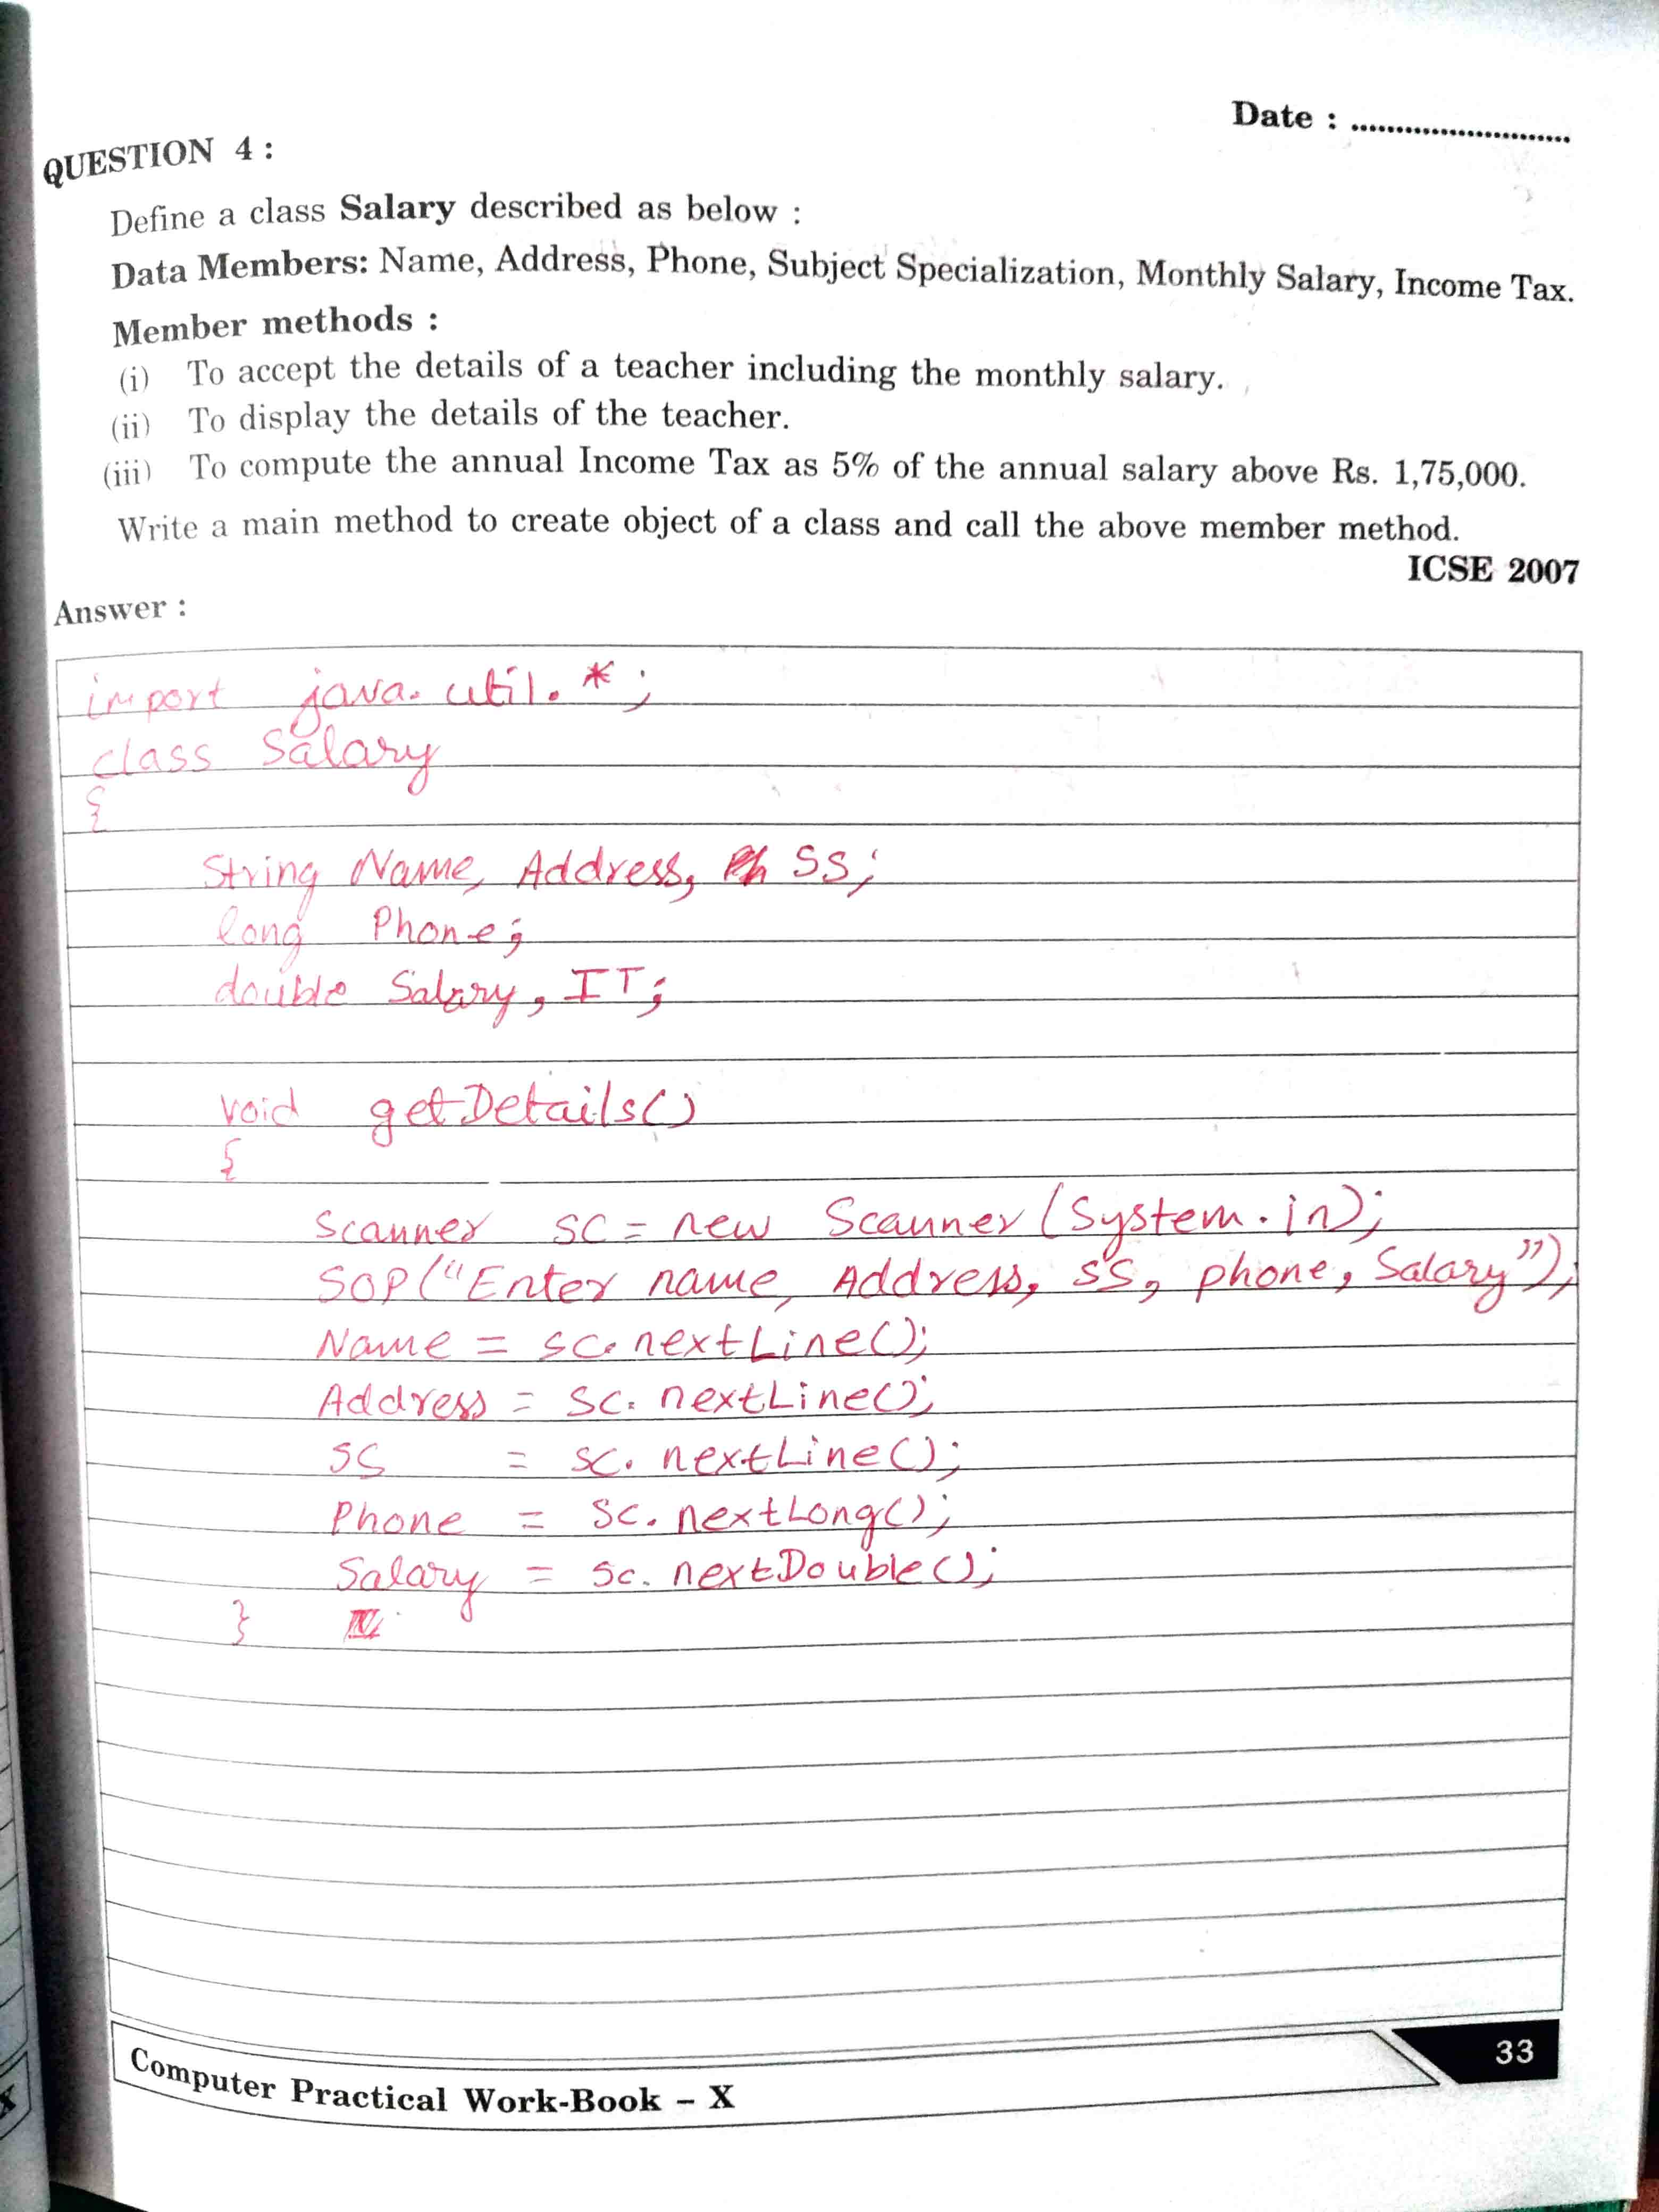 Date : ............................
QUESTION 4 :
Define a class Salary described as below :
Data Members: Name, Address, Phone, Subject Specialization, Monthly Salary, Income Tax.
Member methods :
(i) To accept the details of a teacher including the monthly salary.
(ii) To display the details of the teacher.
(iii) To compute the annual Income Tax as 5% of the annual salary above Rs. 1,75,000.
Write a main method to create object of a class and call the above member method.
ICSE 2007
Answer :
import java.util.*;
class Salary
{
String Name, Address, SS;
long Phone;
double Salary, IT;
void getDetails()
{
Scanner sc = new Scanner(System.in);
SOP("Enter name, Address, SS, phone, Salary");
Name = sc.nextLine();
Address = sc.nextLine();
SS = sc.nextLine();
Phone = sc.nextLong();
Salary = sc.nextDouble();
}
Computer Practical Work-Book – X
33